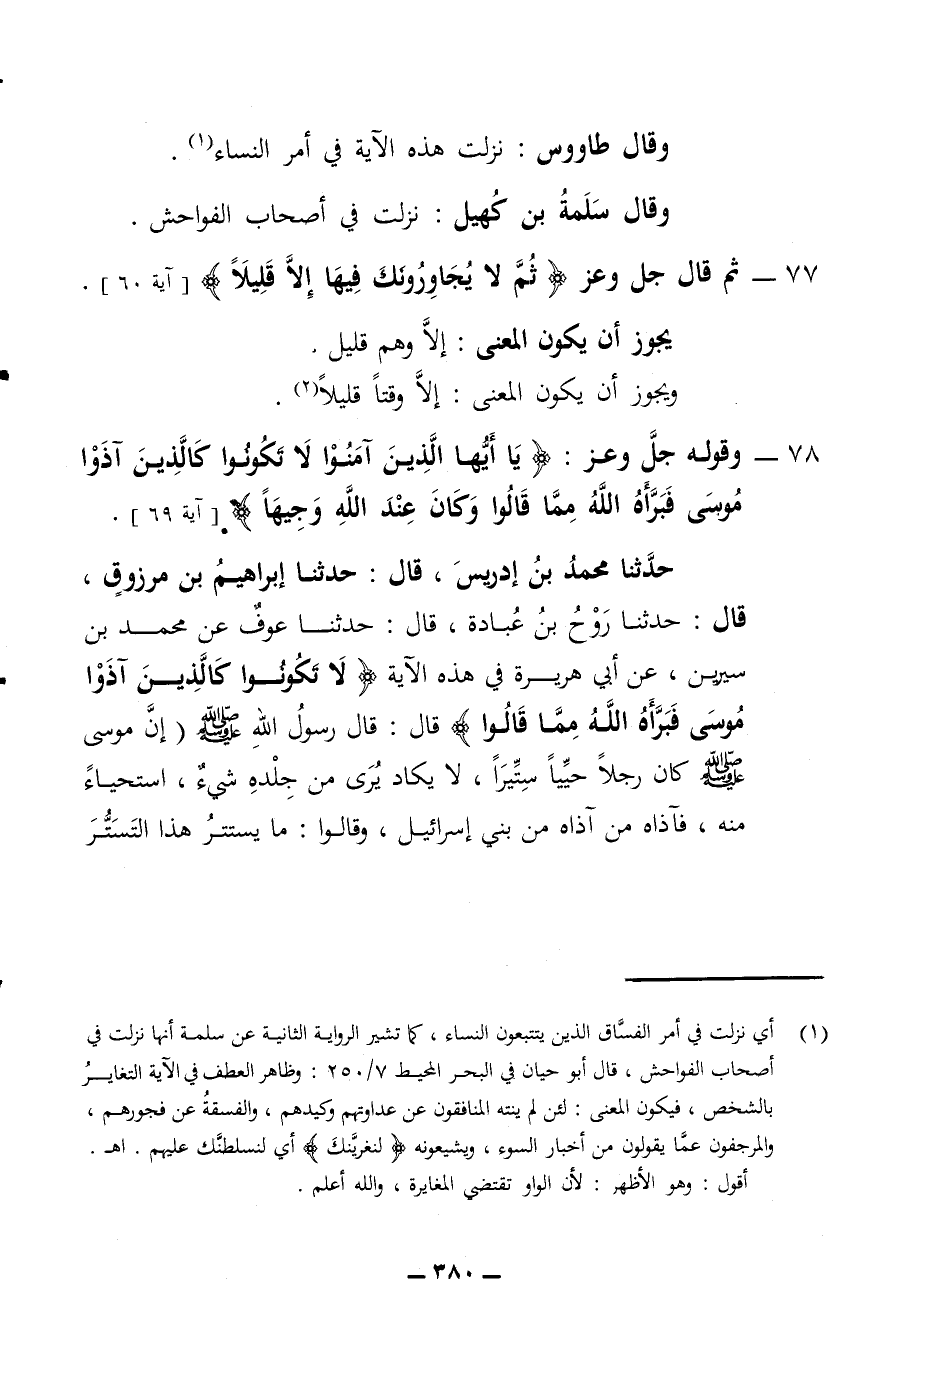 وقال طاووس : نزلت هذه الآية في أمر النساء(١) .
وقال سَلَمةُ بن كُهيل : نزلت في أصحاب الفواحش .
٧٧ ــ ثم قال جل وعز ﴿ ثُمَّ لا يُجَاوِرُونَكَ فِيهَا إِلاَّ قَلِيلَاً ﴾ [ آية ٦٠ ] .
يجوز أن يكون المعنى : إلاَّ وهم قليل .
ويجوز أن يكون المعنى : إلاَّ وقتاً قليلاً(٢) .
٧٨ ــ وقوله جلَّ وعز : ﴿ يَا أَيُّها الَّذِينَ آمَنُوْا لَا تَكُونُوا كَالَّذِينَ آذَوْا
مُوسَى فَبَرَّأَهُ اللَّهُ مِمَّا قَالُوا وَكَانَ عِنْدَ اللَّهِ وَجِيهَاً ﴾ [ آية ٦٩ ] .
حدَّثنا محمدُ بنُ إدريسَ ، قال : حدثنا إبراهيمُ بن مرزوقٍ ،
قال : حدثنا رَوْحُ بنُ عُبادة ، قال : حدثنا عوفٌ عن محمد بن
سيرين ، عن أبي هريرة في هذه الآية ﴿ لَا تَكُونُوا كَالَّذِينَ آذَوْا
مُوسَى فَبَرَّأَهُ اللَّهُ مِمَّا قَالُوا ﴾ قال : قال رسولُ اللهِ ﷺ ( إنَّ موسى
ﷺ كان رجلاً حيِّياً سِتِّيرَاً ، لا يكاد يُرَى من جِلْدهِ شيءٌ ، استحياءً
منه ، فآذاه من آذاه من بني إسرائيل ، وقالوا : ما يستترُ هذا التَسَتُّرَ
(١) أي نزلت في أمر الفسَّاق الذين يتتبعون النساء ، كما تشير الرواية الثانية عن سلمة أنها نزلت في
أصحاب الفواحش ، قال أبو حيان في البحر المحيط ٢٥٠/٧ : وظاهر العطف في الآية التغايرُ
بالشخص ، فيكون المعنى : لئن لم ينته المنافقون عن عداوتهم وكيدهم ، والفسقةُ عن فجورهم ،
والمرجفون عمَّا يقولون من أخبار السوء ، ويشيعونه ﴿ لنغريَّنك ﴾ أي لنسلطنَّك عليهم . اهـ .
أقول : وهو الأظهر : لأن الواو تقتضي المغايرة ، والله أعلم .
ــ ٣٨٠ ــ